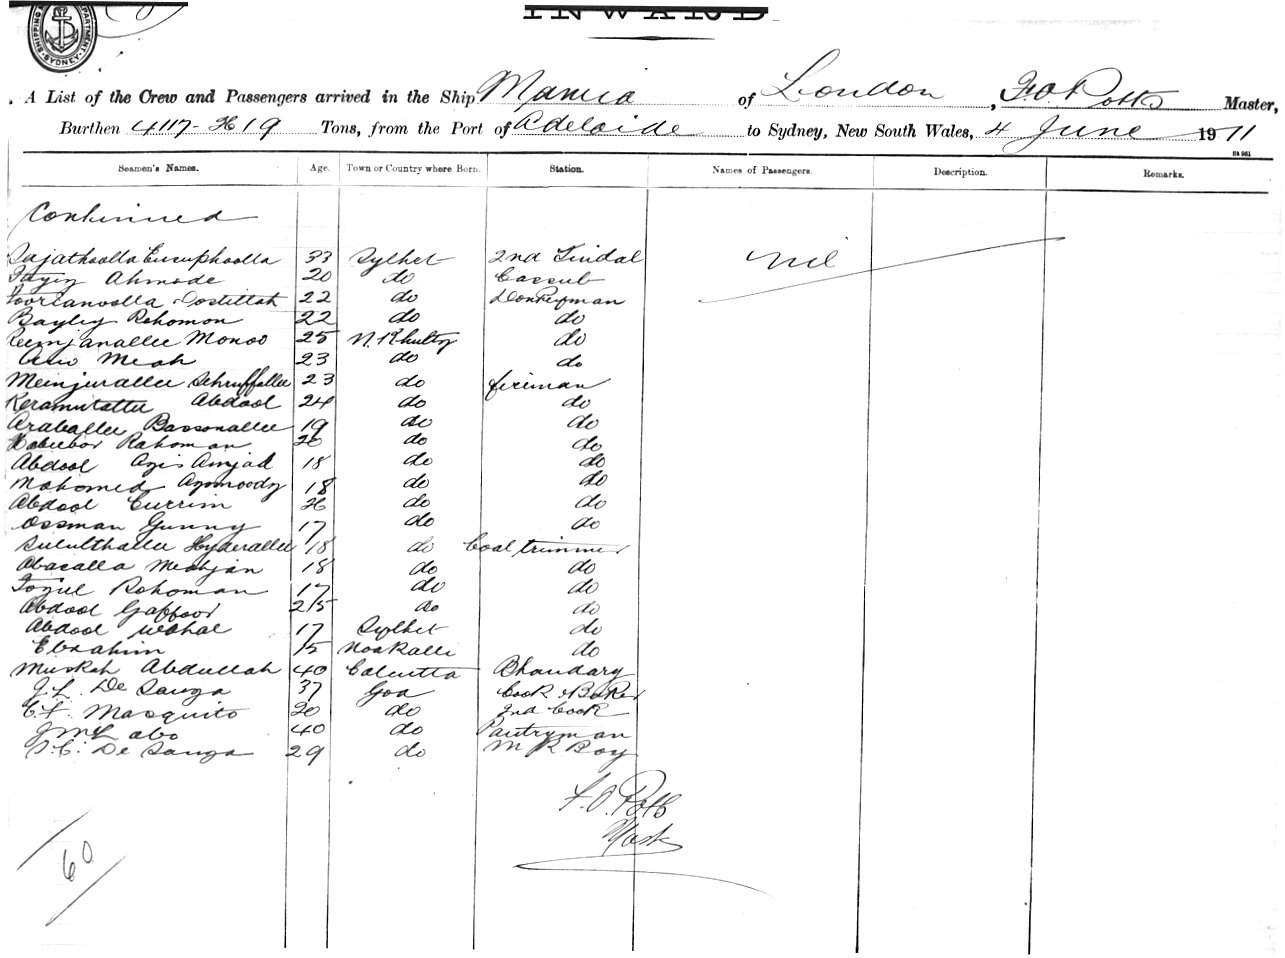 SHIPPING DEPARTMENT. SYDNEY.
INWARD
A List of the Crew and Passengers arrived in the Ship Mamia of London, F.O. Potts Master,
Burthen 4117- H 19 Tons, from the Port of Adelaide to Sydney, New South Wales, 4 June 1911
Seamen's Names. Age. Town or Country where Born. Station. Names of Passengers. Description. Remarks.
Continued
33 Sylhet 2nd Tindal nil
Ahmode 20 do Cassub
22 do Donkeyman
Rohomon 22 do do
Monoo 25 do
Meah 23 do do
23 do fireman
Abdool 24 do do
19 do do
Rahoman 20 do do
Abdool Azis Amjad 18 do do
Mahomed 18 do do
Abdool Currim 26 do do
Ossman Gunny 17 do do
Hyderallee 18 do Coal trimmer
Abasalla Meahjan 18 do do
Rohoman 17 do do
Abdool Gaffoor 25 do do
Abdool Wahal 17 Sylhet do
Ebrahim 15 Noakalli do
Abdullah 40 Calcutta Bhandary
J. L. De Souza 37 Goa Cook & Baker
C. F. Masquito 20 do 2nd Cook
Labo 40 do Pantryman
De Souza 29 do M R Boy
F. O. Potts
Mast
60